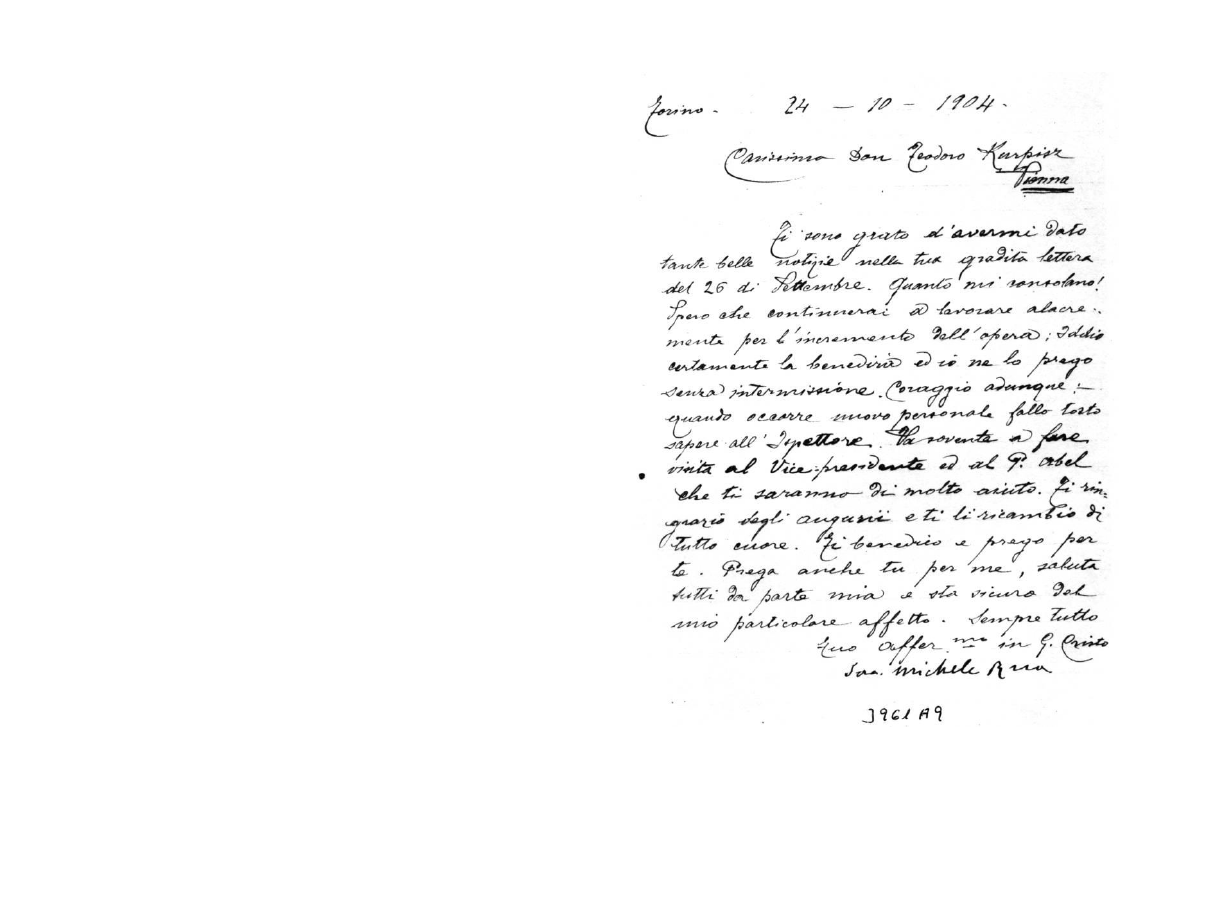 Torino - 24 - 10 - 1904.
Carissimo Don Teodoro Kurpisz
Vienna
Ti sono grato d'avermi dato
tante belle notizie nella tua gradita lettera
del 26 di Settembre. Quanto mi consolano!
Spero che continuerai a lavorare alacre-
mente per l'incremento dell'opera; Iddio
certamente la benedirà ed io ne lo prego
senza intermissione. Coraggio adunque:
quando occorre nuovo personale fallo tosto
sapere all'Ispettore. Va sovente a fare
visita al Vice-presidente ed al P. Abel
che ti saranno di molto aiuto. Ti rin-
grazio degli augurii e ti li ricambio di
tutto cuore. Ti benedico e prego per
te. Prega anche tu per me, saluta
tutti da parte mia e sta sicuro del
mio particolare affetto. Sempre tutto
tuo affez.mo in G. Cristo
Sac. Michele Rua
3961 A9